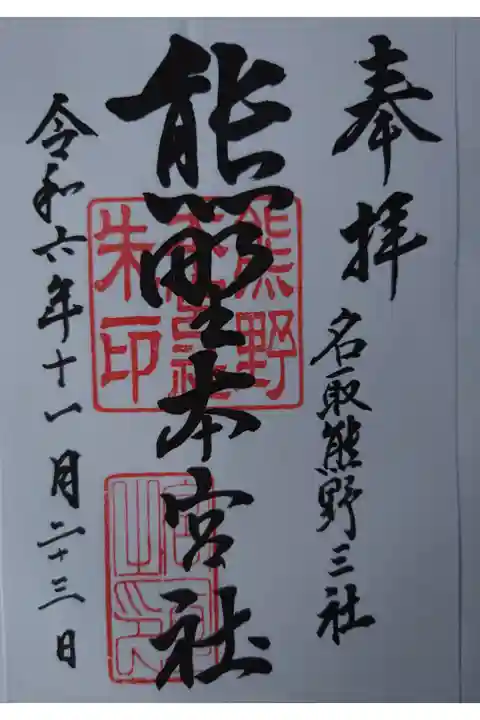 奉拝
名取熊野三社
熊野本宮社
令和六年十一月二十三日
朱印